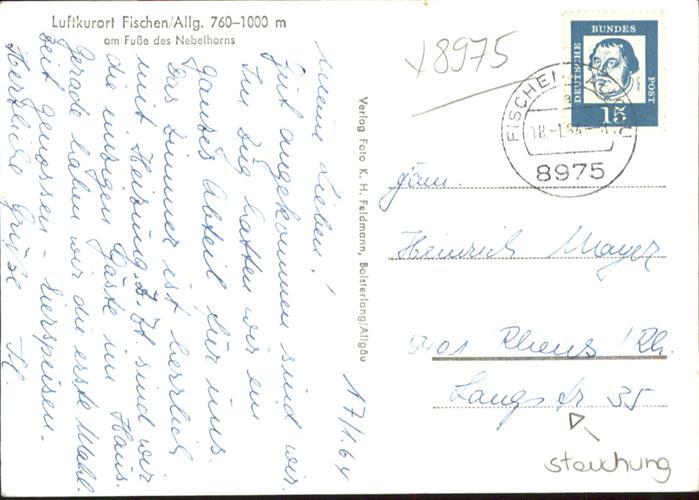 Luftkurort Fischen/Allg. 760–1000 m
am Fuße des Nebelhorns
Meine Lieben!
Gut angekommen sind wir.
Im Zug hatten wir ein
ganzes Abteil für uns.
Das Zimmer ist herrlich
mit Heizung. Z. Zt. sind wir
die einzigen Gäste im Haus.
Gerade haben wir die erste Mahl
zeit genossen -
Herzliche Grüße
17/1.64
Verlag Foto K. H. Feldmann, Bolsterlang/Allgäu
8975
DEUTSCHE
BUNDES
POST
15
FISCHEN
18.-1.64
8975
Fam.
Heinrich Mayer
5401 Rhens /Rh.
Langstr 35
stauchung